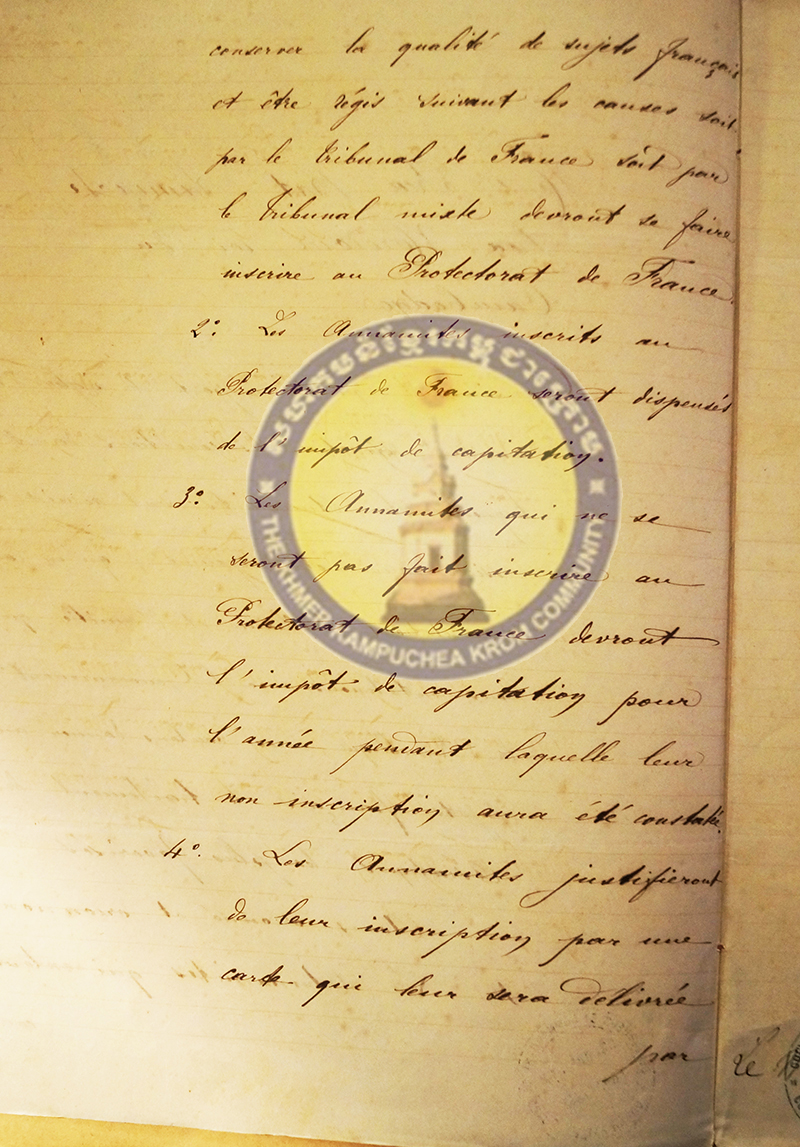 conserver la qualité de sujets français
et être régis suivant les causes soit
par le tribunal de France soit par
le tribunal mixte devront se faire
inscrire au Protectorat de France.
2° Les Annamites inscrits au
Protectorat de France seront dispensés
de l'impôt de capitation.
3° Les Annamites qui ne se
seront pas fait inscrire au
Protectorat de France devront
l'impôt de capitation pour
l'année pendant laquelle leur
non inscription aura été constatée.
4° Les Annamites justifieront
de leur inscription par une
carte qui leur sera délivrée
par
Le
THE KHMER KAMPUCHEA KROM COMMUNITY